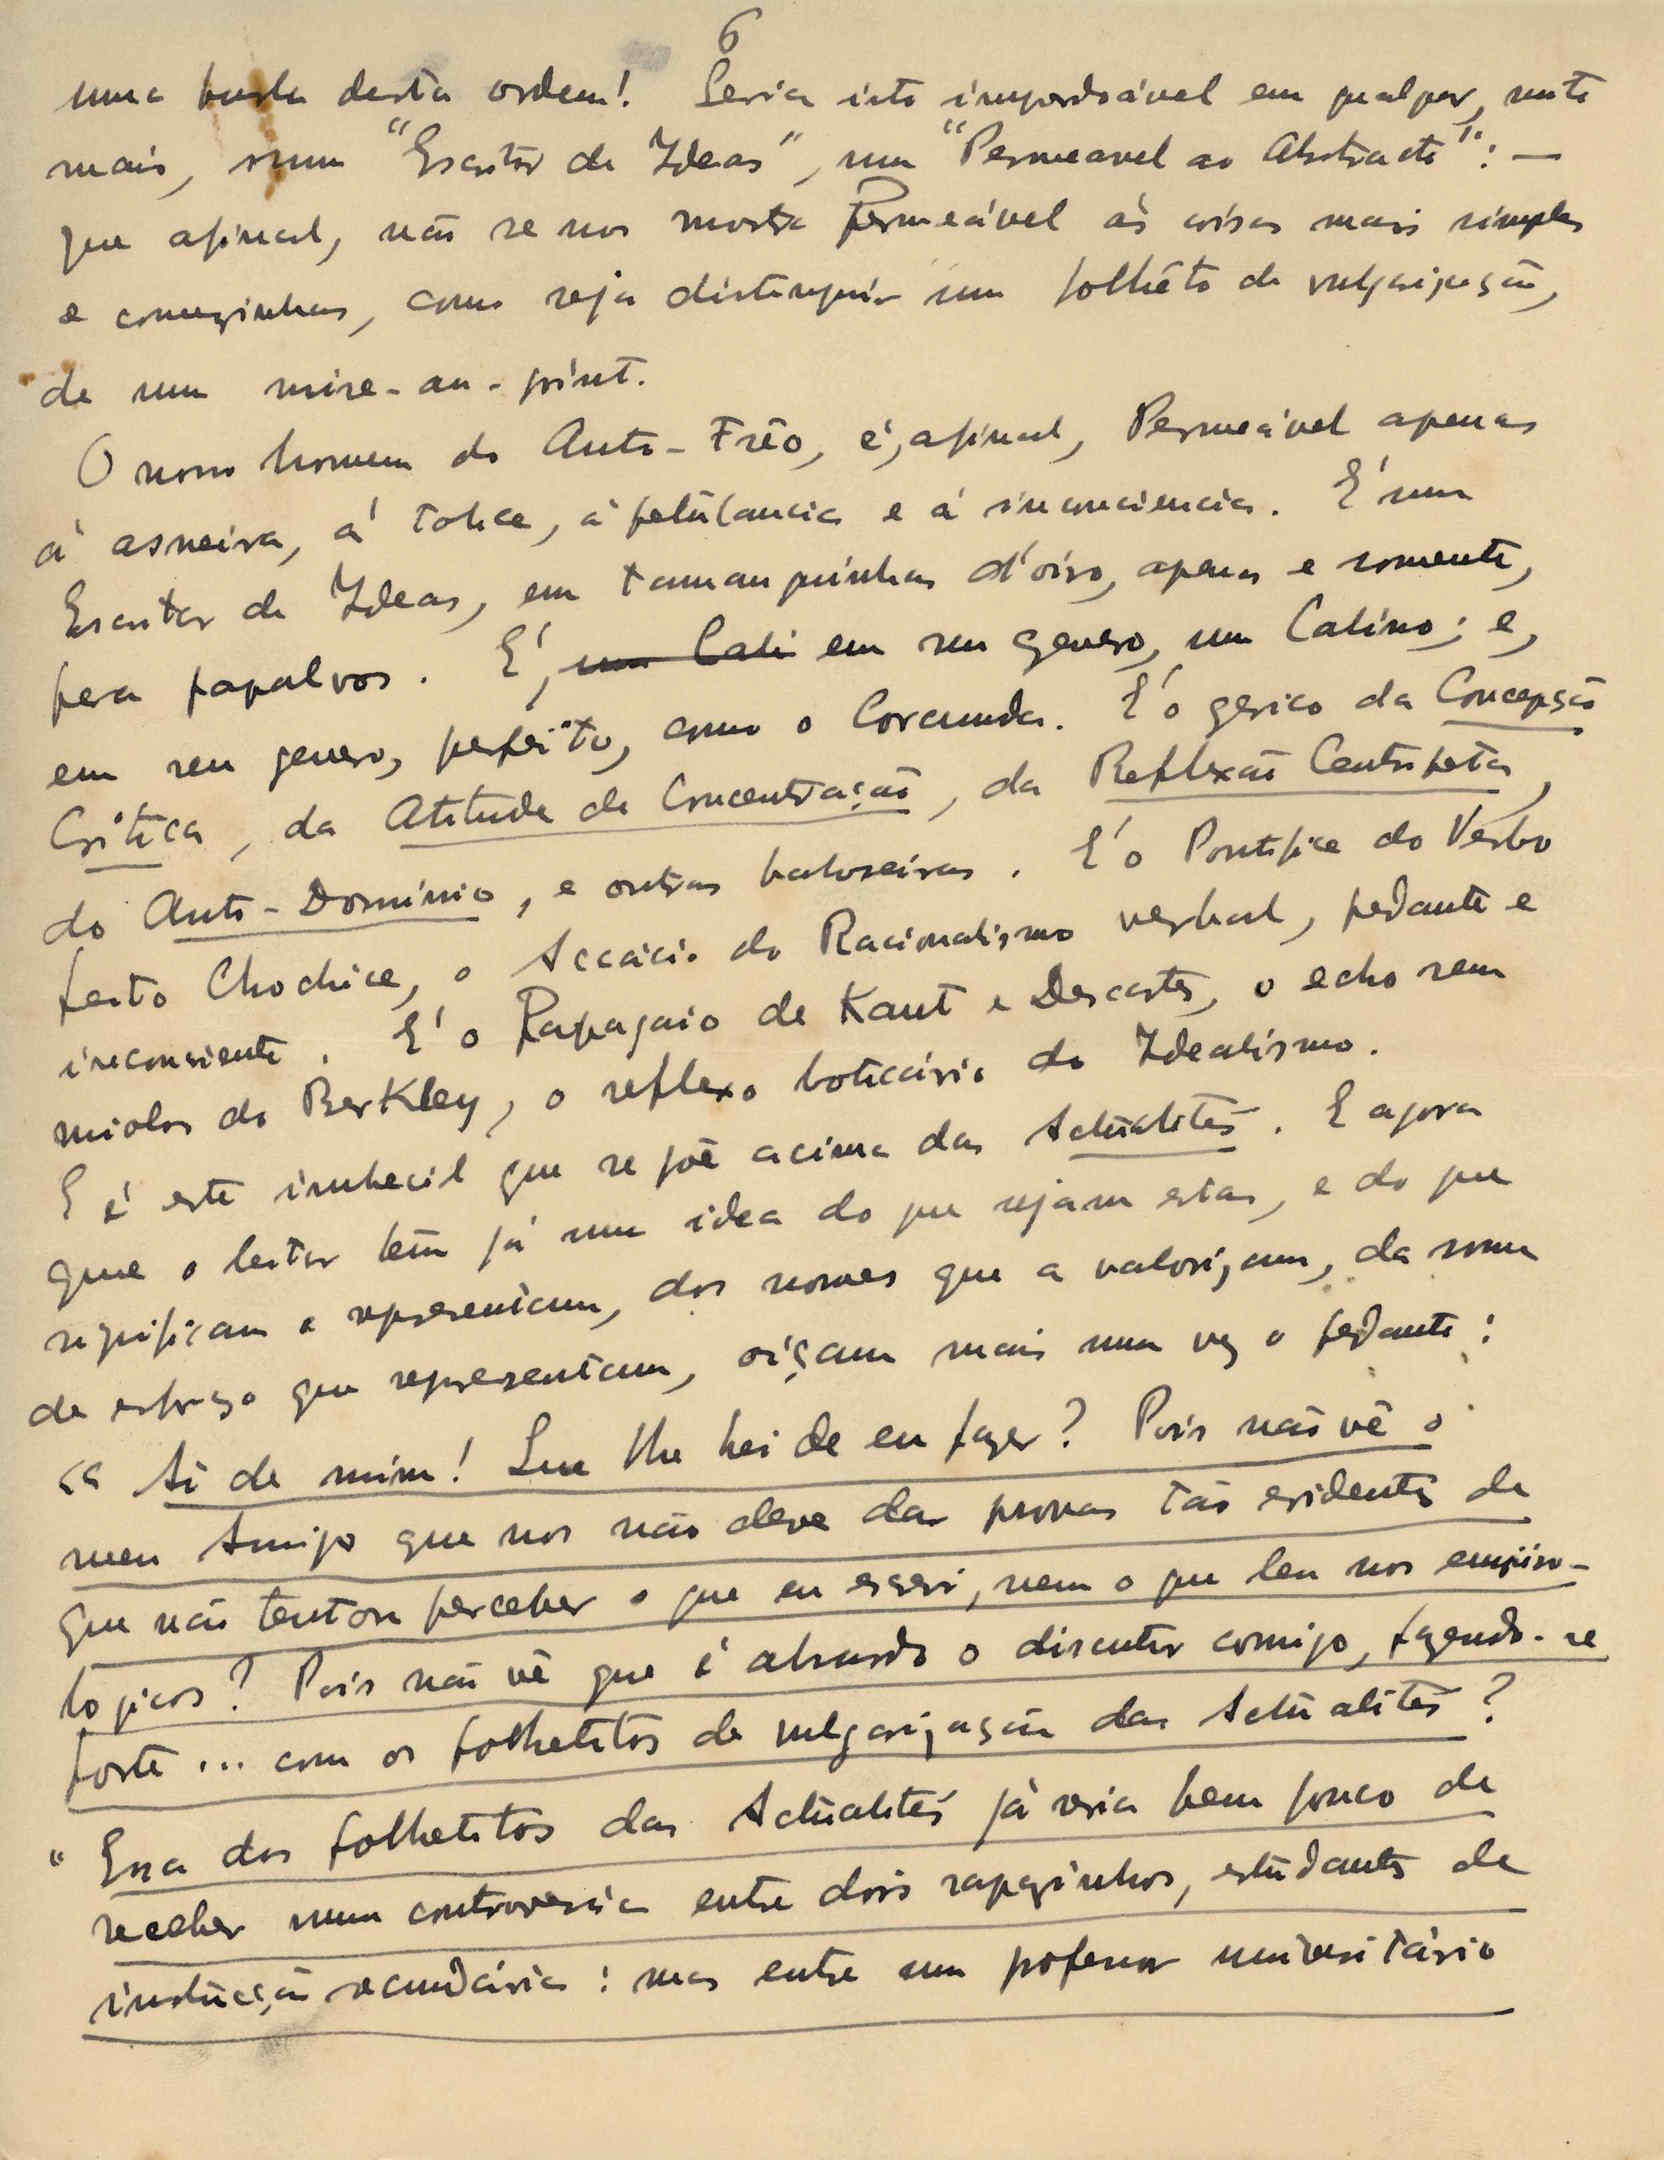 6
uma burla desta ordem! Seria isto imperdoável em qualquer, muito
mais, num "Escritor de Ideas", um "Permeavel ao Abstracto": —
que afinal, não se nos mostra Permeável ás coisas mais simples
e comezinhas, como seja distinguir um folhêto de vulgarização,
de um mise-au-point.
O nosso homem do Anti-Frêo, é, afinal, Permeável apenas
á asneira, á tolice, á petulancia e á inconciencia. É um
Escritor de Ideas, em tamanquinhas d'óiro, apenas e somente,
pera papalvos. É, um Cali em seu genero, um Calino; e,
em seu genero, perfeito, como o Corcunda. É o gerico da Concepção
Crítica, da Atitude de Concentração, da Reflexão Centripeta,
do Anti-Domínio, e outras baboseiras. É o Pontifice do Verbo
feito Chochice, o Accácio do Racionalismo verbal, pedante e
inconsciente. É o Papagaio de Kant e Descartes, o echo sem
miolos do BerKley, o reflexo boticário do Idealismo.
E é este imbecil que se põe acima das Actualités. E agora
que o leitor têm já uma idea do que sejam estas, e do que
significam e representam, dos nomes que a valorizam, da soma
de esforço que representam, oiçam mais uma vez o pedante:
«Ai de mim! Que lhe hei de eu fazer? Pois não vê o
meu Amigo que nos não deve dar provas tão evidentes de
que não tentou perceber o que eu escrevi, nem o que leu nos empiro-
logicos? Pois não vê que é absurdo o discutir comigo, fazendo-se
forte... com os folhetitos de vulgarização das Actualités?
"Essa dos folhetitos das Actualités já seria bem pouco de
receber numa controversia entre dois rapazinhos, estudantes de
instrucção secundária: mas entre um professor universitário